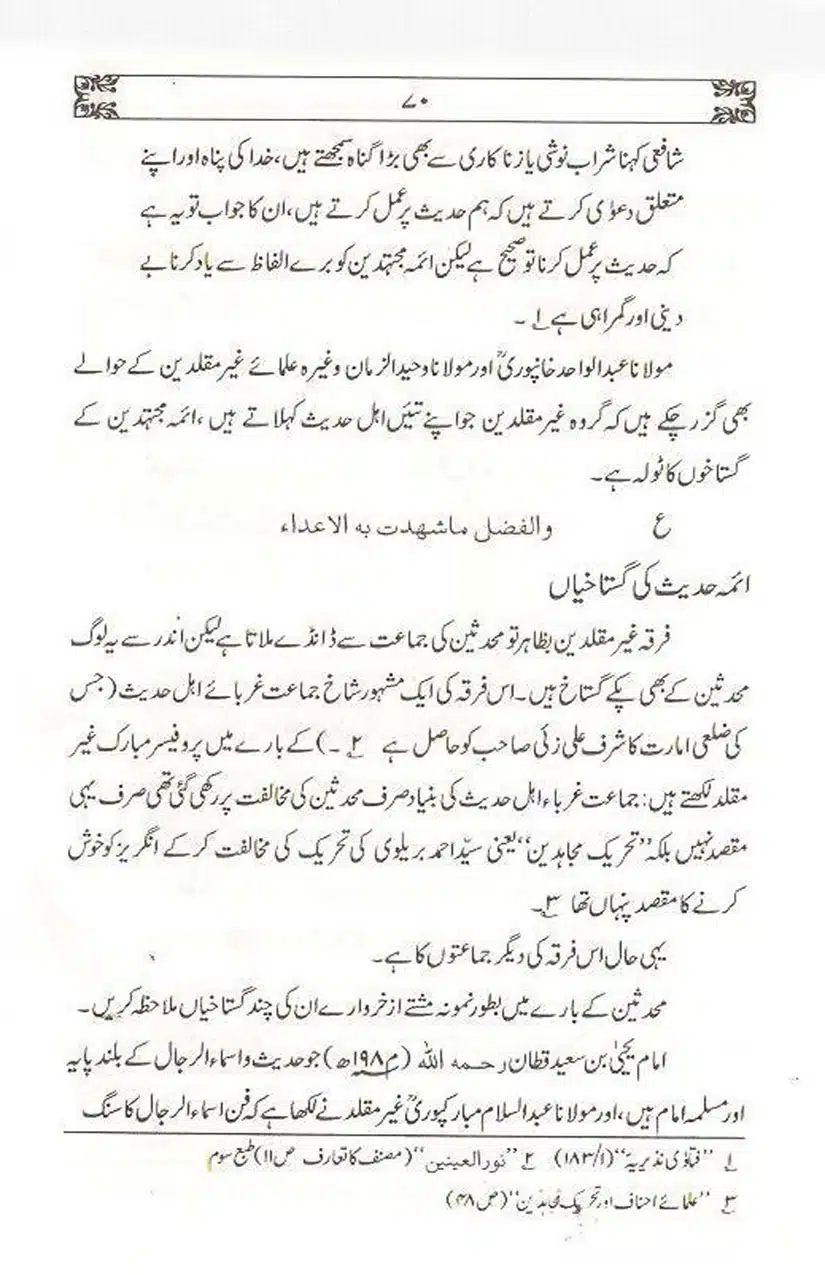 ۷۰
شافعی کہنا شراب نوشی یا زناکاری سے بھی بڑا گناہ سمجھتے ہیں، خدا کی پناہ اور اپنے
متعلق دعوٰی کرتے ہیں کہ ہم حدیث پر عمل کرتے ہیں، ان کا جواب تو یہ ہے
کہ حدیث پر عمل کرنا تو صحیح ہے لیکن ائمہ مجتہدین کو برے الفاظ سے یاد کرنا بے
دینی اور گمراہی ہے ۱۔
مولانا عبدالواحد خانپوریؒ اور مولانا وحیدالزمان وغیرہ علمائے غیر مقلدین کے حوالے
بھی گزر چکے ہیں کہ گروہ غیر مقلدین جو اپنے تئیں اہل حدیث کہلاتے ہیں، ائمہ مجتہدین کے
گستاخوں کا ٹولہ ہے۔
ع والفضل ماشھدت بہ الاعداء
ائمہ حدیث کی گستاخیاں
فرقہ غیر مقلدین بظاہر تو محدثین کی جماعت سے ڈانڈے ملاتا ہے لیکن اندر سے یہ لوگ
محدثین کے بھی پکے گستاخ ہیں۔ اس فرقہ کی ایک مشہور شاخ جماعت غربائے اہل حدیث (جس
کی ضلعی امارت کا شرف علی زئی صاحب کو حاصل ہے ۲۔) کے بارے میں پروفیسر مبارک غیر
مقلد لکھتے ہیں: جماعت غرباء اہل حدیث کی بنیاد صرف محدثین کی مخالفت پر رکھی گئی تھی صرف یہی
مقصد نہیں بلکہ ’’تحریک مجاہدین‘‘ یعنی سیّد احمد بریلوی کی تحریک کی مخالفت کر کے انگریز کو خوش
کرنے کا مقصد پنہاں تھا ۳۔
یہی حال اس فرقہ کی دیگر جماعتوں کا ہے۔
محدثین کے بارے میں بطور نمونہ مشتے از خروارے ان کی چند گستاخیاں ملاحظہ کریں۔
امام یحییٰ بن سعید قطان رحمہ اللہ (م ۱۹۸ھ) جو حدیث و اسماء الرجال کے بلند پایہ
اور مسلمہ امام ہیں، اور مولانا عبدالسلام مبارکپوریؒ غیر مقلد نے لکھا ہے کہ فن اسماء الرجال کا سنگ
۱ ’’فتاوٰی نذیریہ‘‘ (۱/۱۸۳) ۲ ’’نورالعینین‘‘ (مصنف کا تعارف ص ۱۱) طبع سوم
۳ ’’علمائے احناف اور تحریک مجاہدین‘‘ (ص ۴۸)